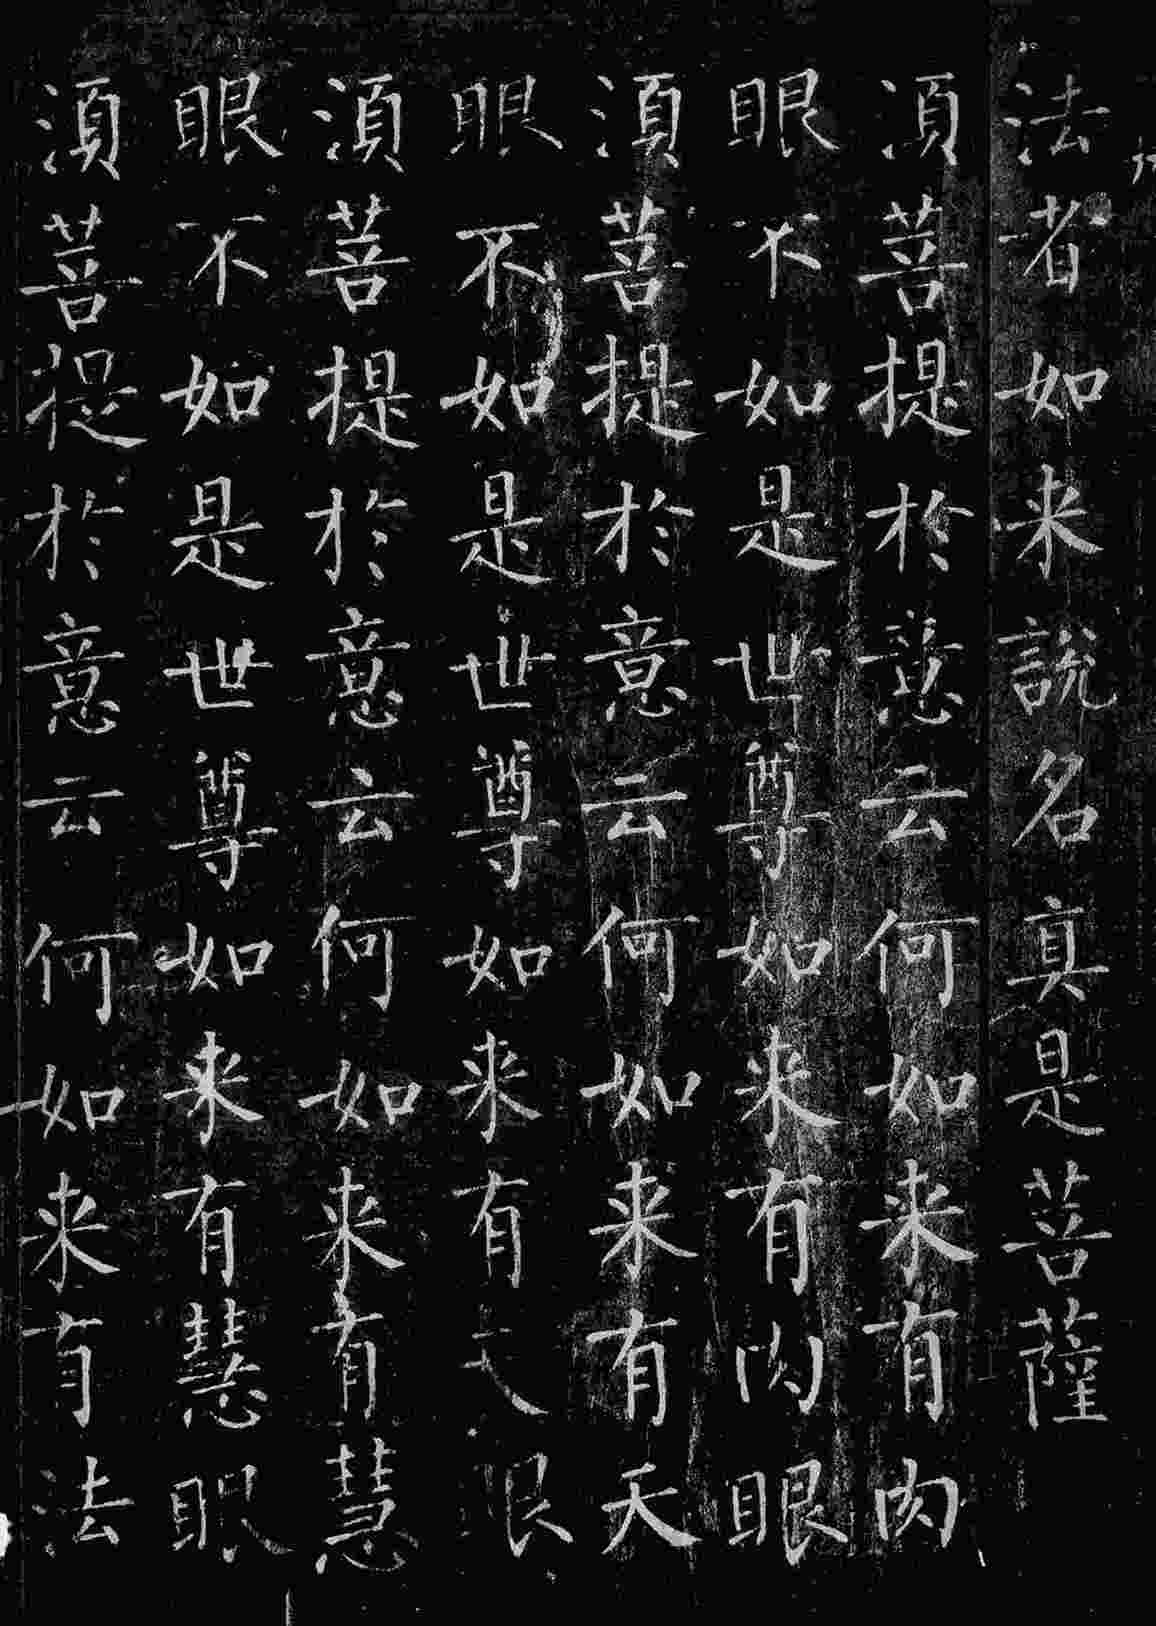 法者如来說名真是菩薩
湏菩提於意云何如来有肉
眼不如是世尊如来有肉眼
湏菩提於意云何如来有天
眼不如是世尊如来有天眼
湏菩提於意云何如来有慧
眼不如是世尊如来有慧眼
湏菩提於意云何如来有法